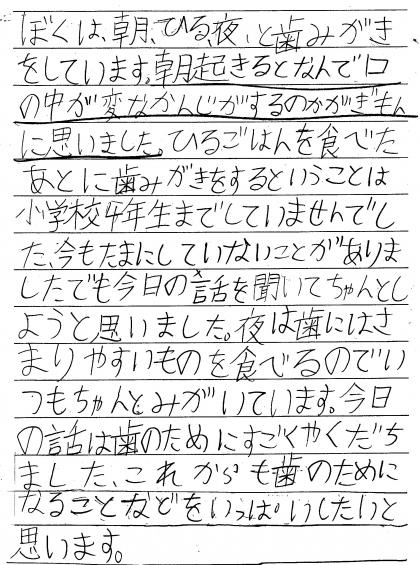 ぼくは、朝、ひる、夜、と歯みがき
をしています。朝起きるとなんで口
の中が変なかんじがするのかがぎもん
に思いました。ひるごはんを食べた
あとに歯みがきをするということは
小学校4年生までしていませんでし
た、今もたまにしていないことがありま
したでも今日の話を聞いてちゃんとし
ようと思いました。夜は歯にはさ
まりやすいものを食べるのでい
つもちゃんとみがいています。今日
の話は歯のためにすごくやくだち
ました、これからも歯のために
なることなどをいっぱいしたいと
思います。